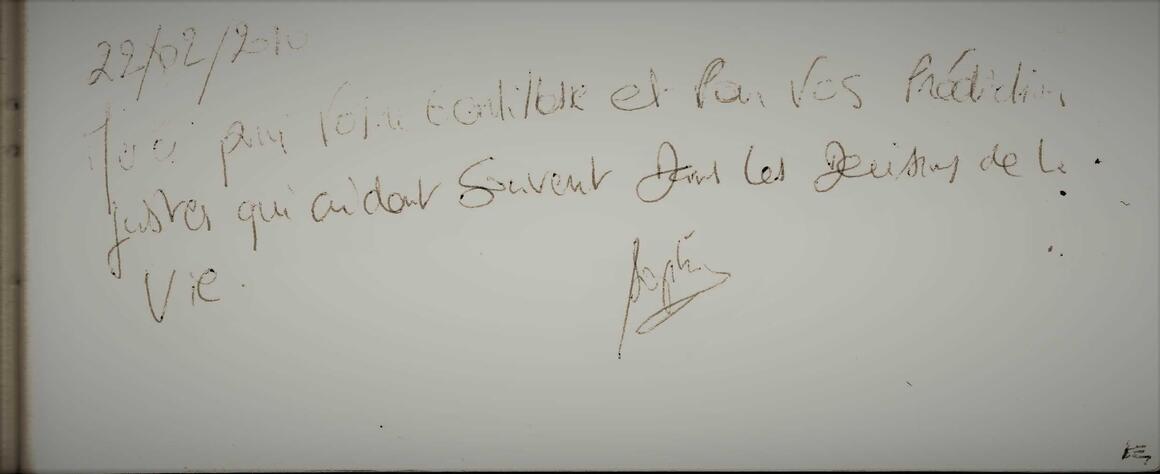 22/02/2010
pour votre et Pour Vos Prédictions
justes qui aident Souvent Dans les Decisions de la
Vie.
Sophie